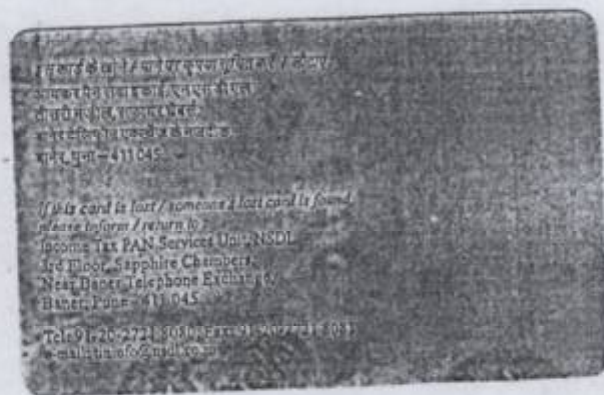 इस कार्ड के खोने / पाने पर कृपया सूचित करें / लौटाएं
आयकर पैन सेवा इकाई, एन एस डी एल
तीसरी मंजील, सफायर चेंबर्स,
बानेर टेलिफोन एक्स्चेंज के नजदीक,
बानेर, पुना – 411 045.
If this card is lost / someone's lost card is found,
please inform / return to :
Income Tax PAN Services Unit, NSDL
3rd Floor, Sapphire Chambers,
Near Baner Telephone Exchange,
Baner, Pune - 411 045.
Tel: 91-20-2721 8080, Fax: 91-20-2721 8081
e-mail: tininfo@nsdl.co.in